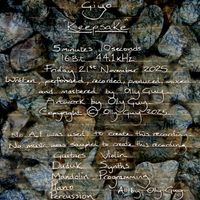 Giyo
Keepsake
5 minutes 10 seconds
16 Bit 44.1 kHz
Friday 21st November 2025
Written, performed, recorded, produced, mixed
and mastered by Oly Guy
Artwork by Oly Guy
Copyright © Oly Guy 2025
No A.I was used to create this recording
No music was sampled to create this recording
Guitars Violin
Synths
Mandolin Programming
Piano
Percussion
All by Oly Guy